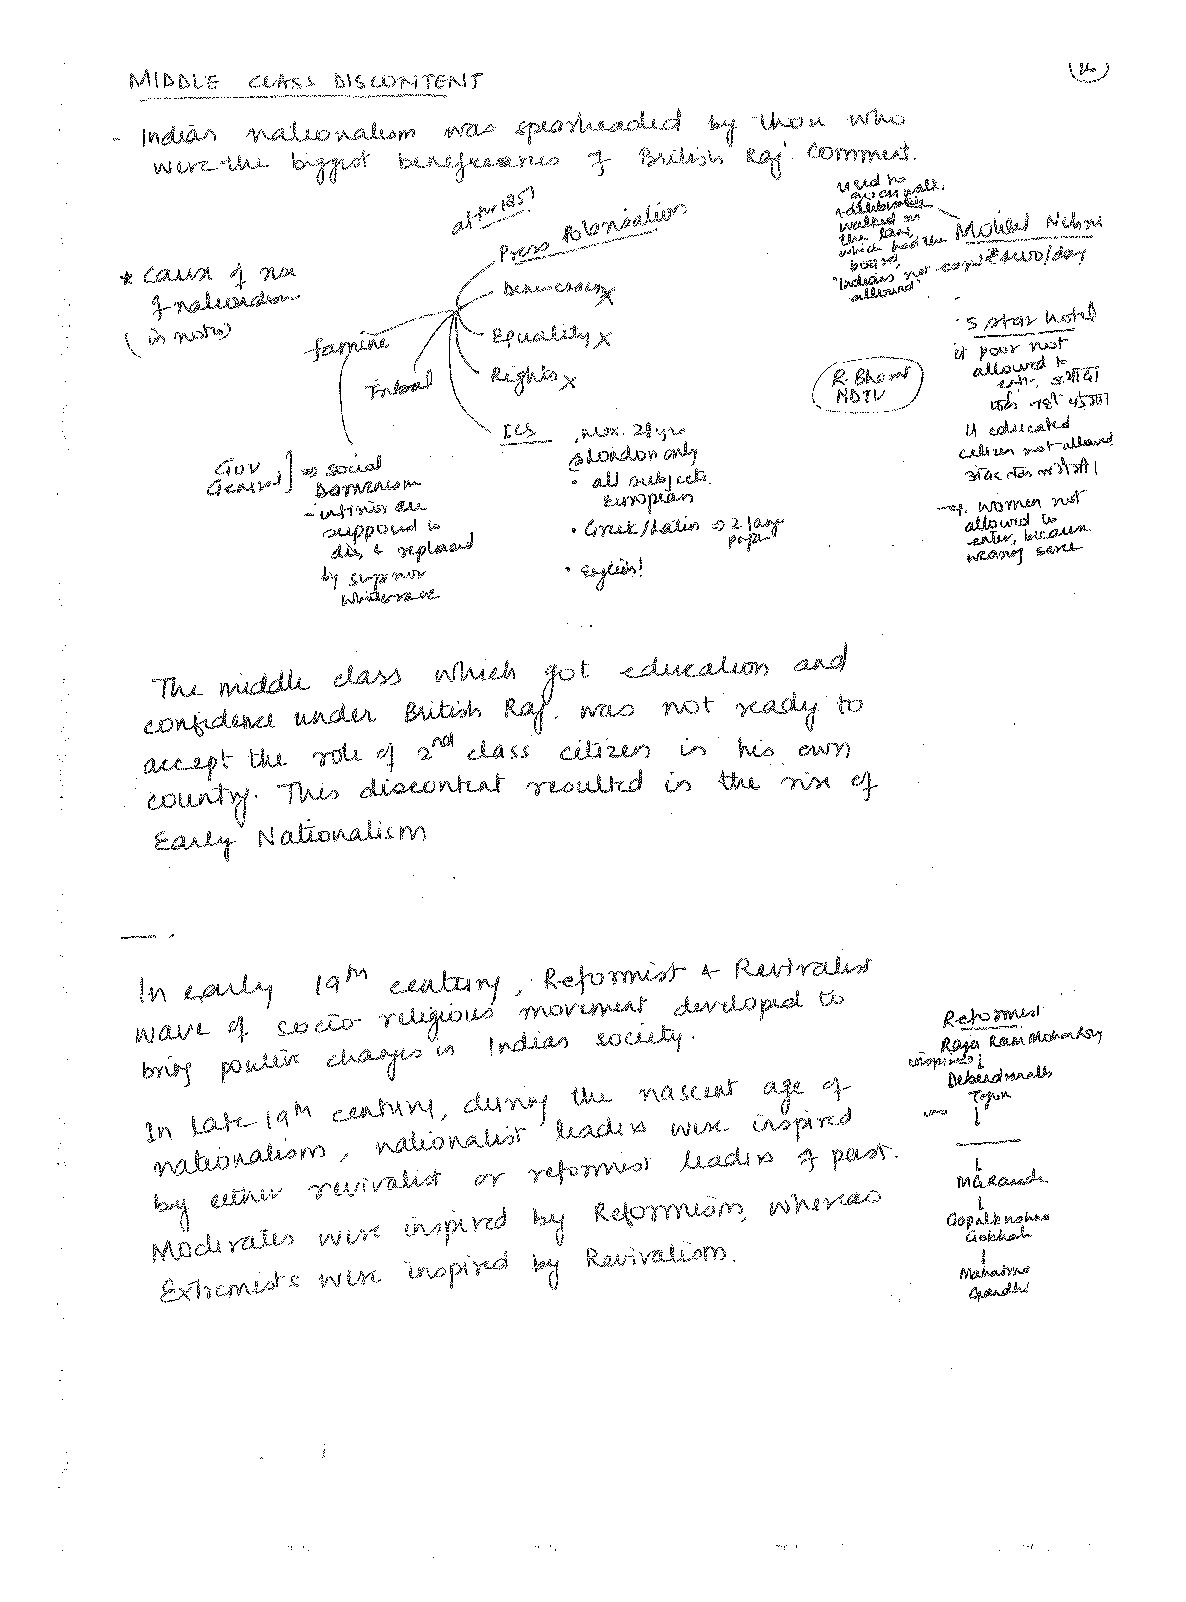 MIDDLE CLASS DISCONTENT
16
- Indian nationalism was spearheaded by those who
were the biggest beneficiaries of British Raj. Comment.
after 1857
Press Polarisation
* cause of rise
of nationalism
(in notes)
Democracy x
Equality x
Rights x
famine
Tribal
ICS
, max. 21 yrs
London only
• all subjects
European
• Greek/Latin ⇒ 2 large
paper
• English!
Gov
General
⇒ social
Darwinism
- inferior are
supposed to
die, & replaced
by superior
white race
used to
walk,
& deliberately
walked in
the lane
which had the
board,
"Indians not
allowed"
Motilal Nehru
/day
5 star hotel
if poor not
allowed to
enter,
if educated
citizen not allowed
eg. women not
allowed to
enter, because
wearing saree
R. Bharat
NDTV
The middle class which got education and
confidence under British Raj. was not ready to
accept the role of 2nd class citizen in his own
country. This discontent resulted in the rise of
Early Nationalism
In early 19th century, Reformist & Revivalist
wave of socio religious movement developed to
bring positive changes in Indian society.
In late 19th century, during the nascent age of
nationalism, nationalist leaders were inspired
by either revivalist or reformist leaders of past.
Moderates were inspired by Reformism, whereas
Extremists were inspired by Revivalism.
Reformist
Raja Ram Mohan Roy
inspired ↓
Debendranath
Tagore
↓
↓
MG Ranade
↓
Gopal Krishna
Gokhale
↓
Mahatma
Gandhi